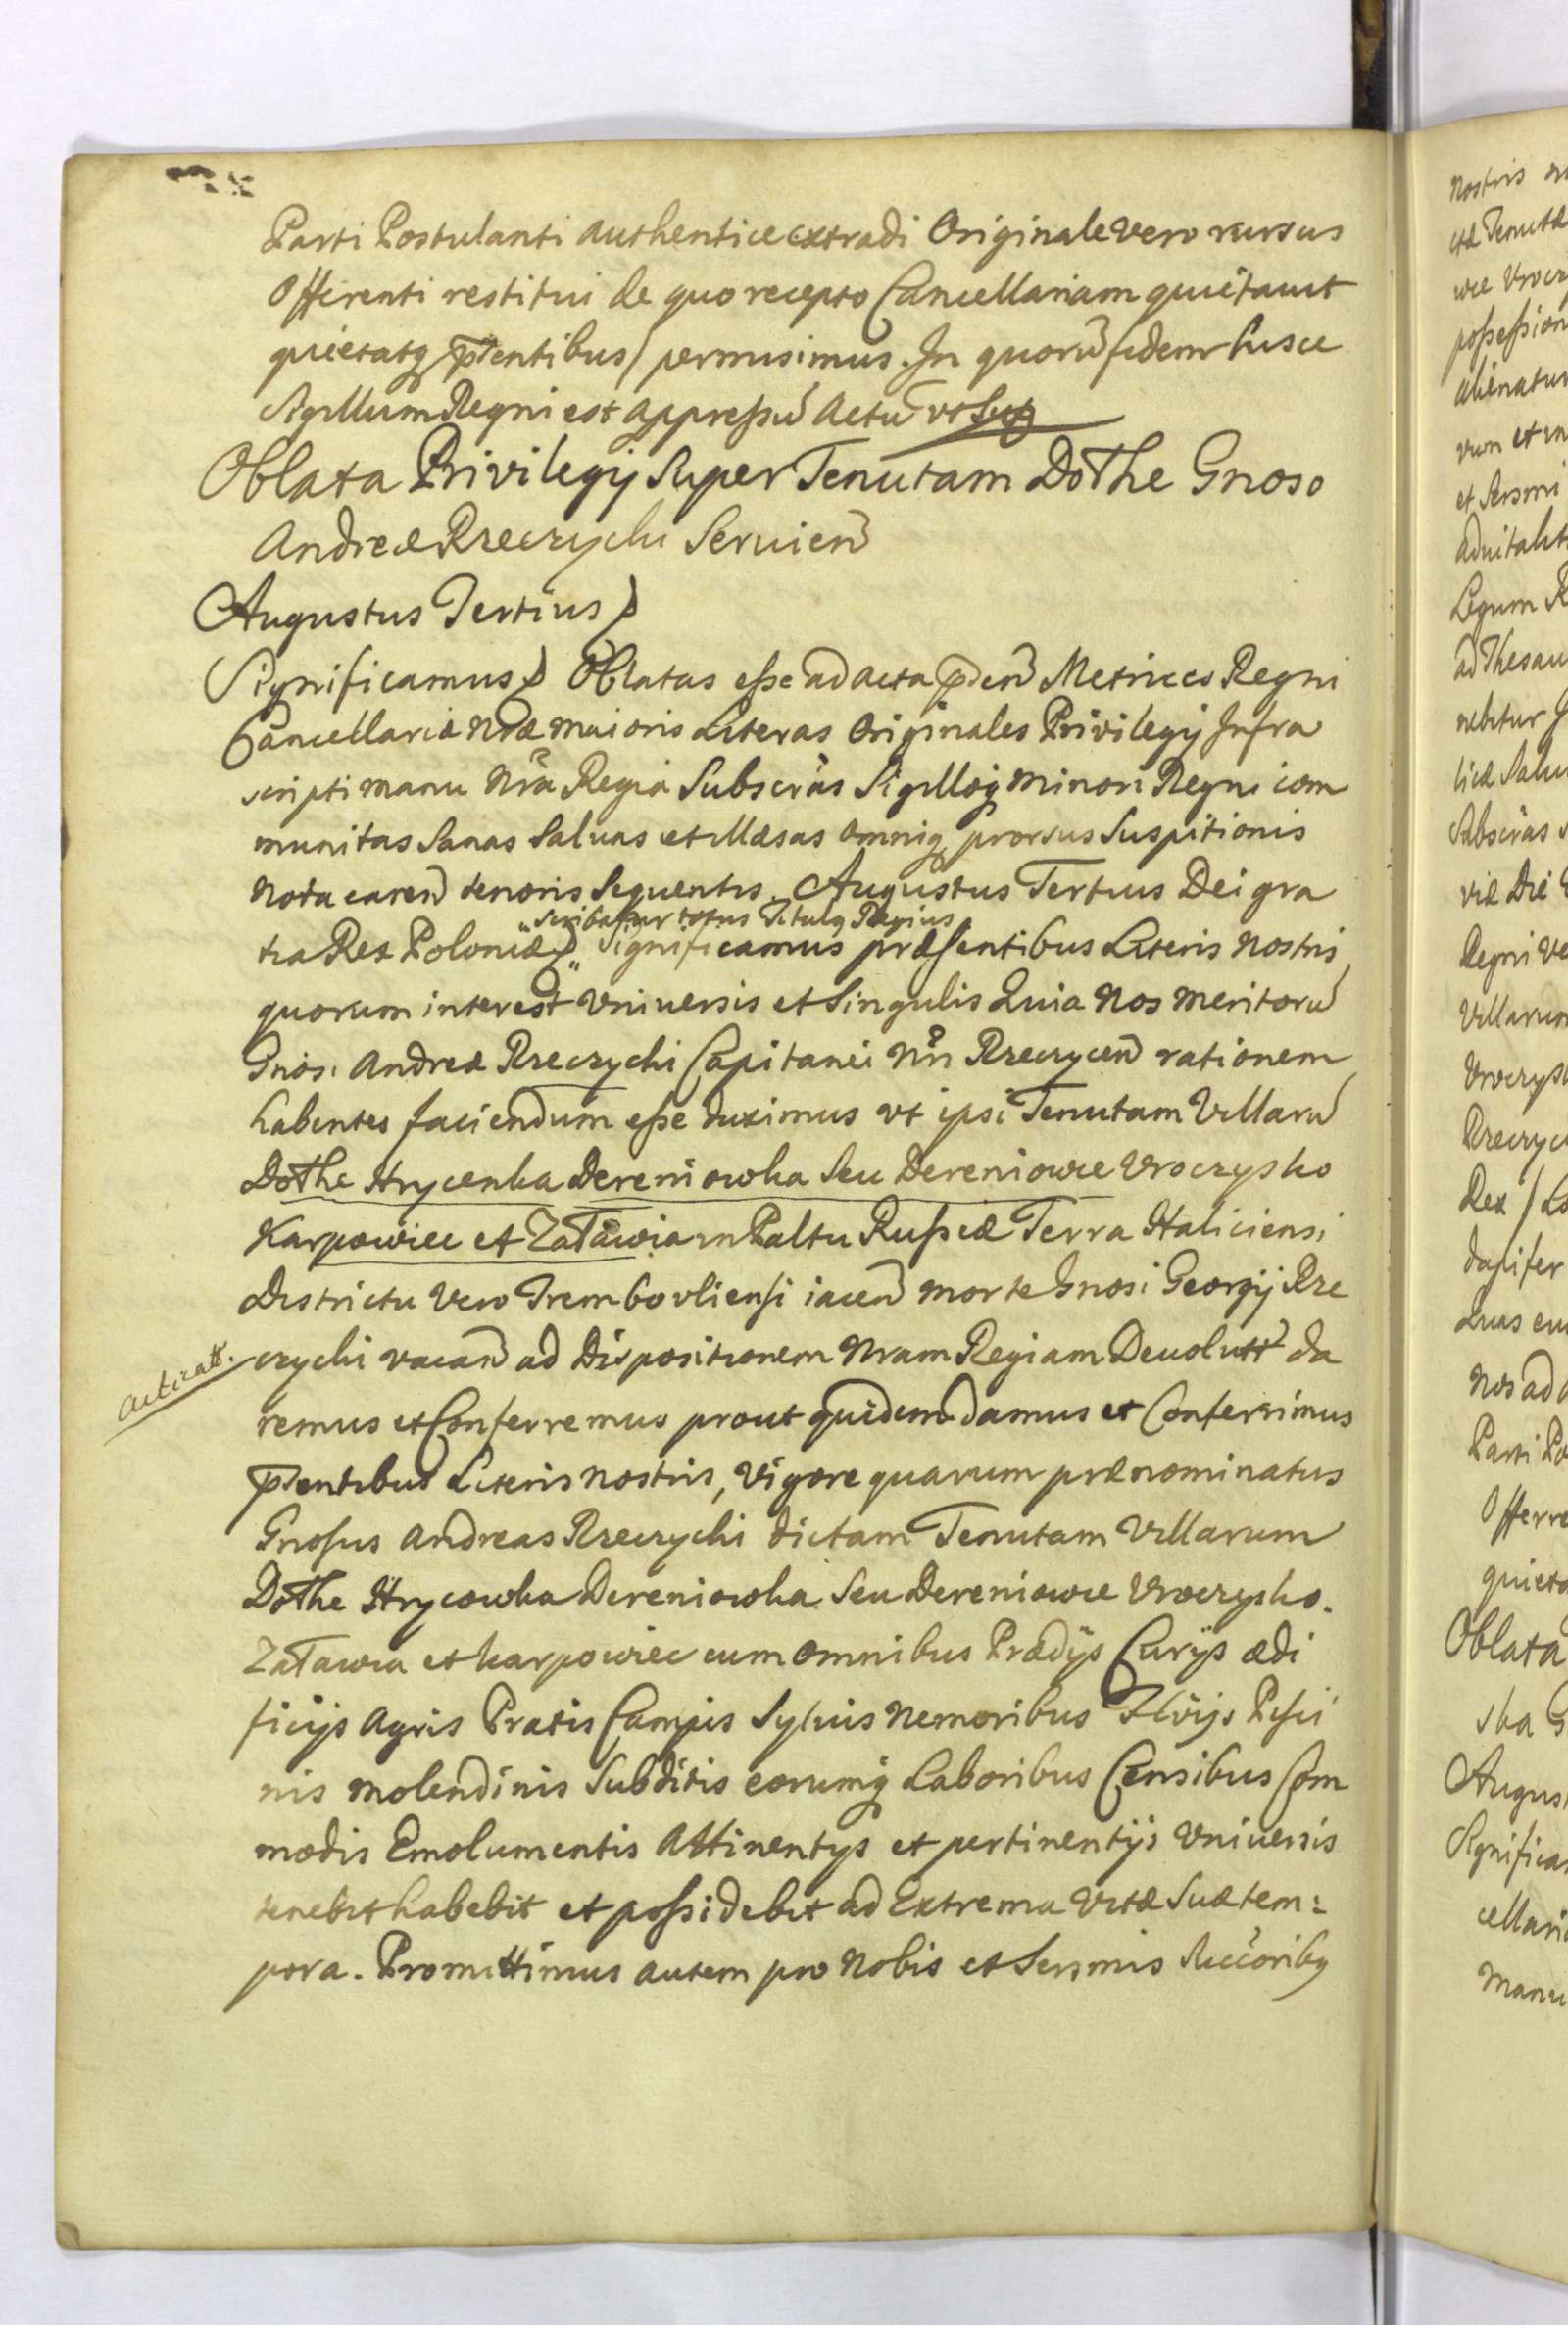 Parti Postulanti authentice extradi Originale vero rursus
Offerenti restitui de quo recepto Cancellariam quietauit
quietatq̃ p̃ntibus permisimus. In quorũ fidem husce
Sigillum Regni est appressũ Actũ vt Supᷓ
Oblata Privilegij Super Tenutam Dołhe Gnoso
Andreæ Rzeczycki Seruien̄
Augustus Tertius
Significamus Oblatas esse ad acta p̃den̄ Metrices Regni
Cancellariæ Nr̃æ Maioris Literas Originales Privilegij Infra
scripti manu Nr̃a Regia Subscr̃as Sigilloq̃ minori Regni com
munitas Sanas Saluas et Illæsas omniq̃ prorsus Suspitionis
Nota caren̄ tenoris Sequentis. Augustus Tertius Dei gra
„Scribatur totus Titulq Regius
tia Rex Poloniæ „ Significamus præsentibus Literis Nostris
quorum interest Vniuersis et Singulis Quia Nos meritorũ
Gnosi Andreæ Rzeczycki Capitanei Nr̃i Rzeczycen̄ rationem
habentes faciendum esse duximus vt ipsi Tenutam Villarũ
Dołhe Hrycenka Dereniowka Seu Dereniowce Vroczysko
Karpowiec et Załawia in Paltu Russiæ Terra Haliciensi
Districtu Vero Trembovliensi iacen̄ morte Gnosi Georgij Rze
czycki vacan̄ ad Dispositionem Nram Regiam Deuolutt̃ da
remus et Conferremus prout quidem damus et Conferrimus
p̃ntibus Literis nostris, Vigore quarum prænominatus
Gnosus Andreas Rzeczycki dictam Tenutam Villarum
Dołhe Hrycowka Dereniowka Seu Dereniowce Vroczysko.
Załawia et karpowiec cum omnibus Prædijs Curijs ædi
ficijs Agris Pratis Campis Syluis Nemoribus Fluijs Pisci
nis molendinis Subditis eorumq̃ Laboribus Censibus Com
modis Emolumentis Attinentijs et pertinentijs Vniuersis
tenebit habebit et possidebit ad Extrema Vitæ Suæ tem:
pora. Promittimus autem pro Nobis et Sermis Succ̃oribq